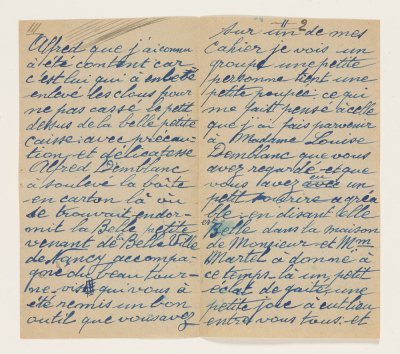 III
Alfred que j'ai connu
à été content car
c'est lui qui à
enlevé les clous pour
ne pas cassé le petit
dessus de la belle petite
caisse avec précau
tion et délicatesse
Alfred Demblanc
à soulevé la boîte
en carton là où
se trouvait endor
mit la Belle petite
venant de Belle Ville
de Nancy accompa
gné du beau tour-
ne-vis qui vous à
été remis un bon
outil que vous avez
II 2
Sur un de mes
Cahier je vois un
groupe une petite
personne tient une
petite poupée ce qui
me fait pensé à celle
que j'ai fais parvenir
à Madame Louise
Demblanc que vous
avez regardé et que
vous avez eu un
petit sourire agréa
ble en disant elle
est Belle dans la maison
de Monsieur et Mme
Martet à donné à
ce temps là un petit
éclat de gaité une
petite joie à eut lieu
entre vous tous et